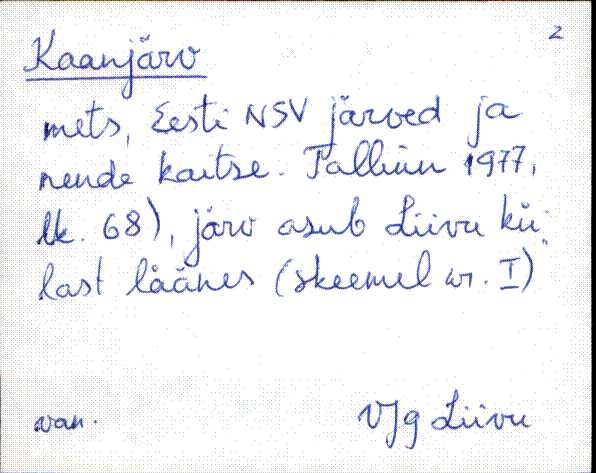 2
Kaanjärv
mets, Eesti NSV järved ja
nende kaitse. Tallinn 1977,
lk. 68), järv asub Liivu kü-
last läänes (skeemel nr. I)
van. VJg Liivu